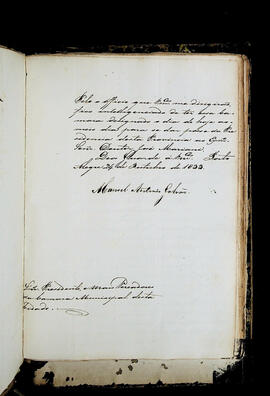 Pelo officio que Vmces me dirigirão,
fico intelligenciado de ter essa Ca-
mara designado o dia de hoje ao
meio dia para se dar posse da Pre-
sidencia desta Provincia ao Cida-
dão Doutor José Mariani.
Deos Guarde a Vmces Porto
Alegre 24 de Outubro de 1833.
Manoel Antonio Galvão
Snrs. Presidente e mais Vereadores
da Camara Municipal desta
Cidade.